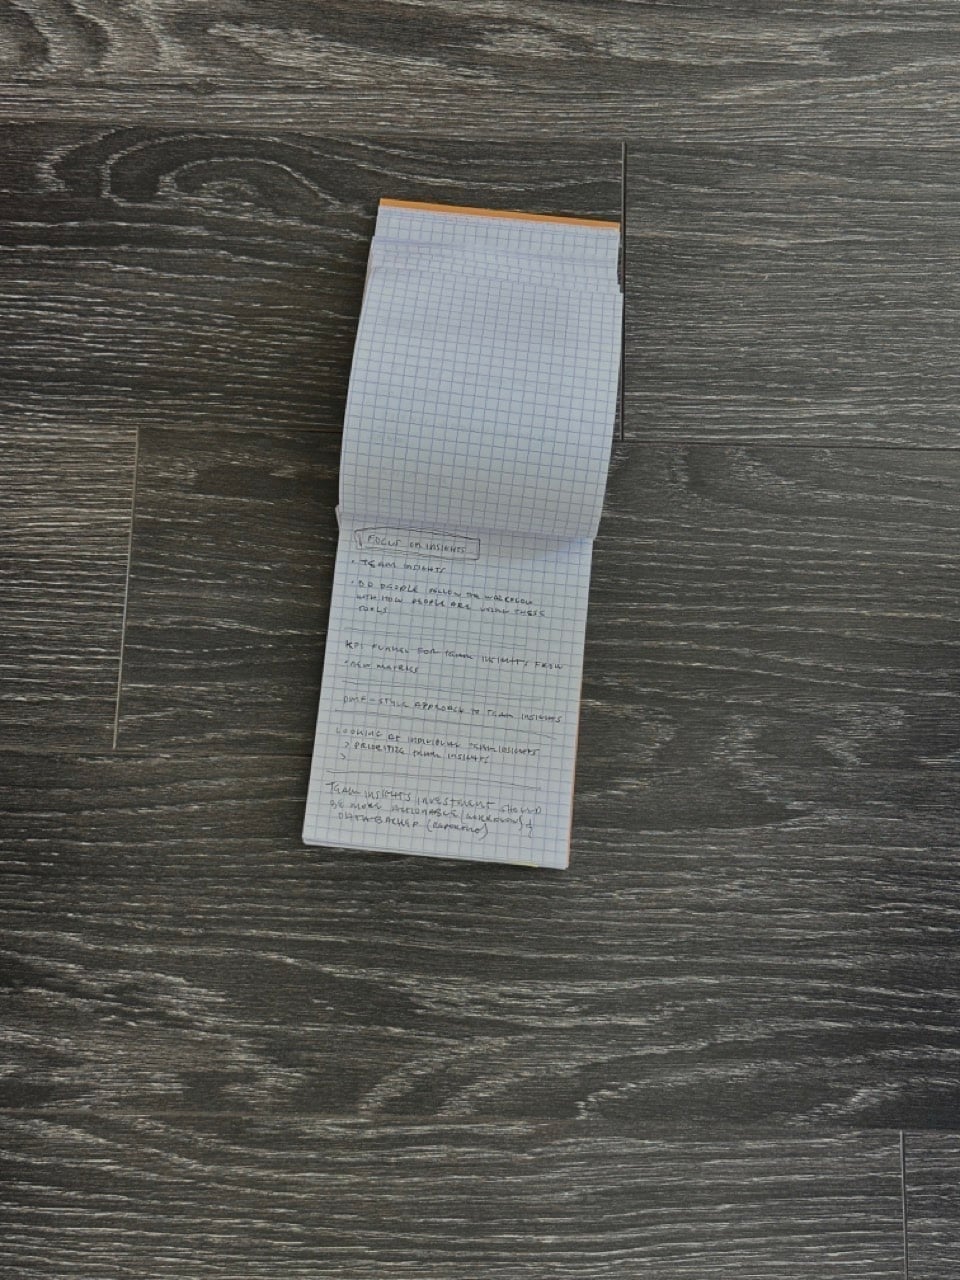 FOCUS ON INSIGHTS
• TEAM INSIGHTS
• DO PEOPLE FOLLOW THE WORKFLOW
WITH HOW PEOPLE ARE USING THESE
TOOLS
KPI FUNNEL FOR TEAM INSIGHTS FROM
• NEW
STYLE APPROACH TO TEAM INSIGHTS
LOOKING AT INDIVIDUAL TEAM INSIGHTS
> PRIORITIZE TEAM INSIGHTS
>
TEAM INSIGHTS INVESTMENT SHOULD
BE MORE ACTIONABLE (WORKFLOW) &
DATA-BACKED